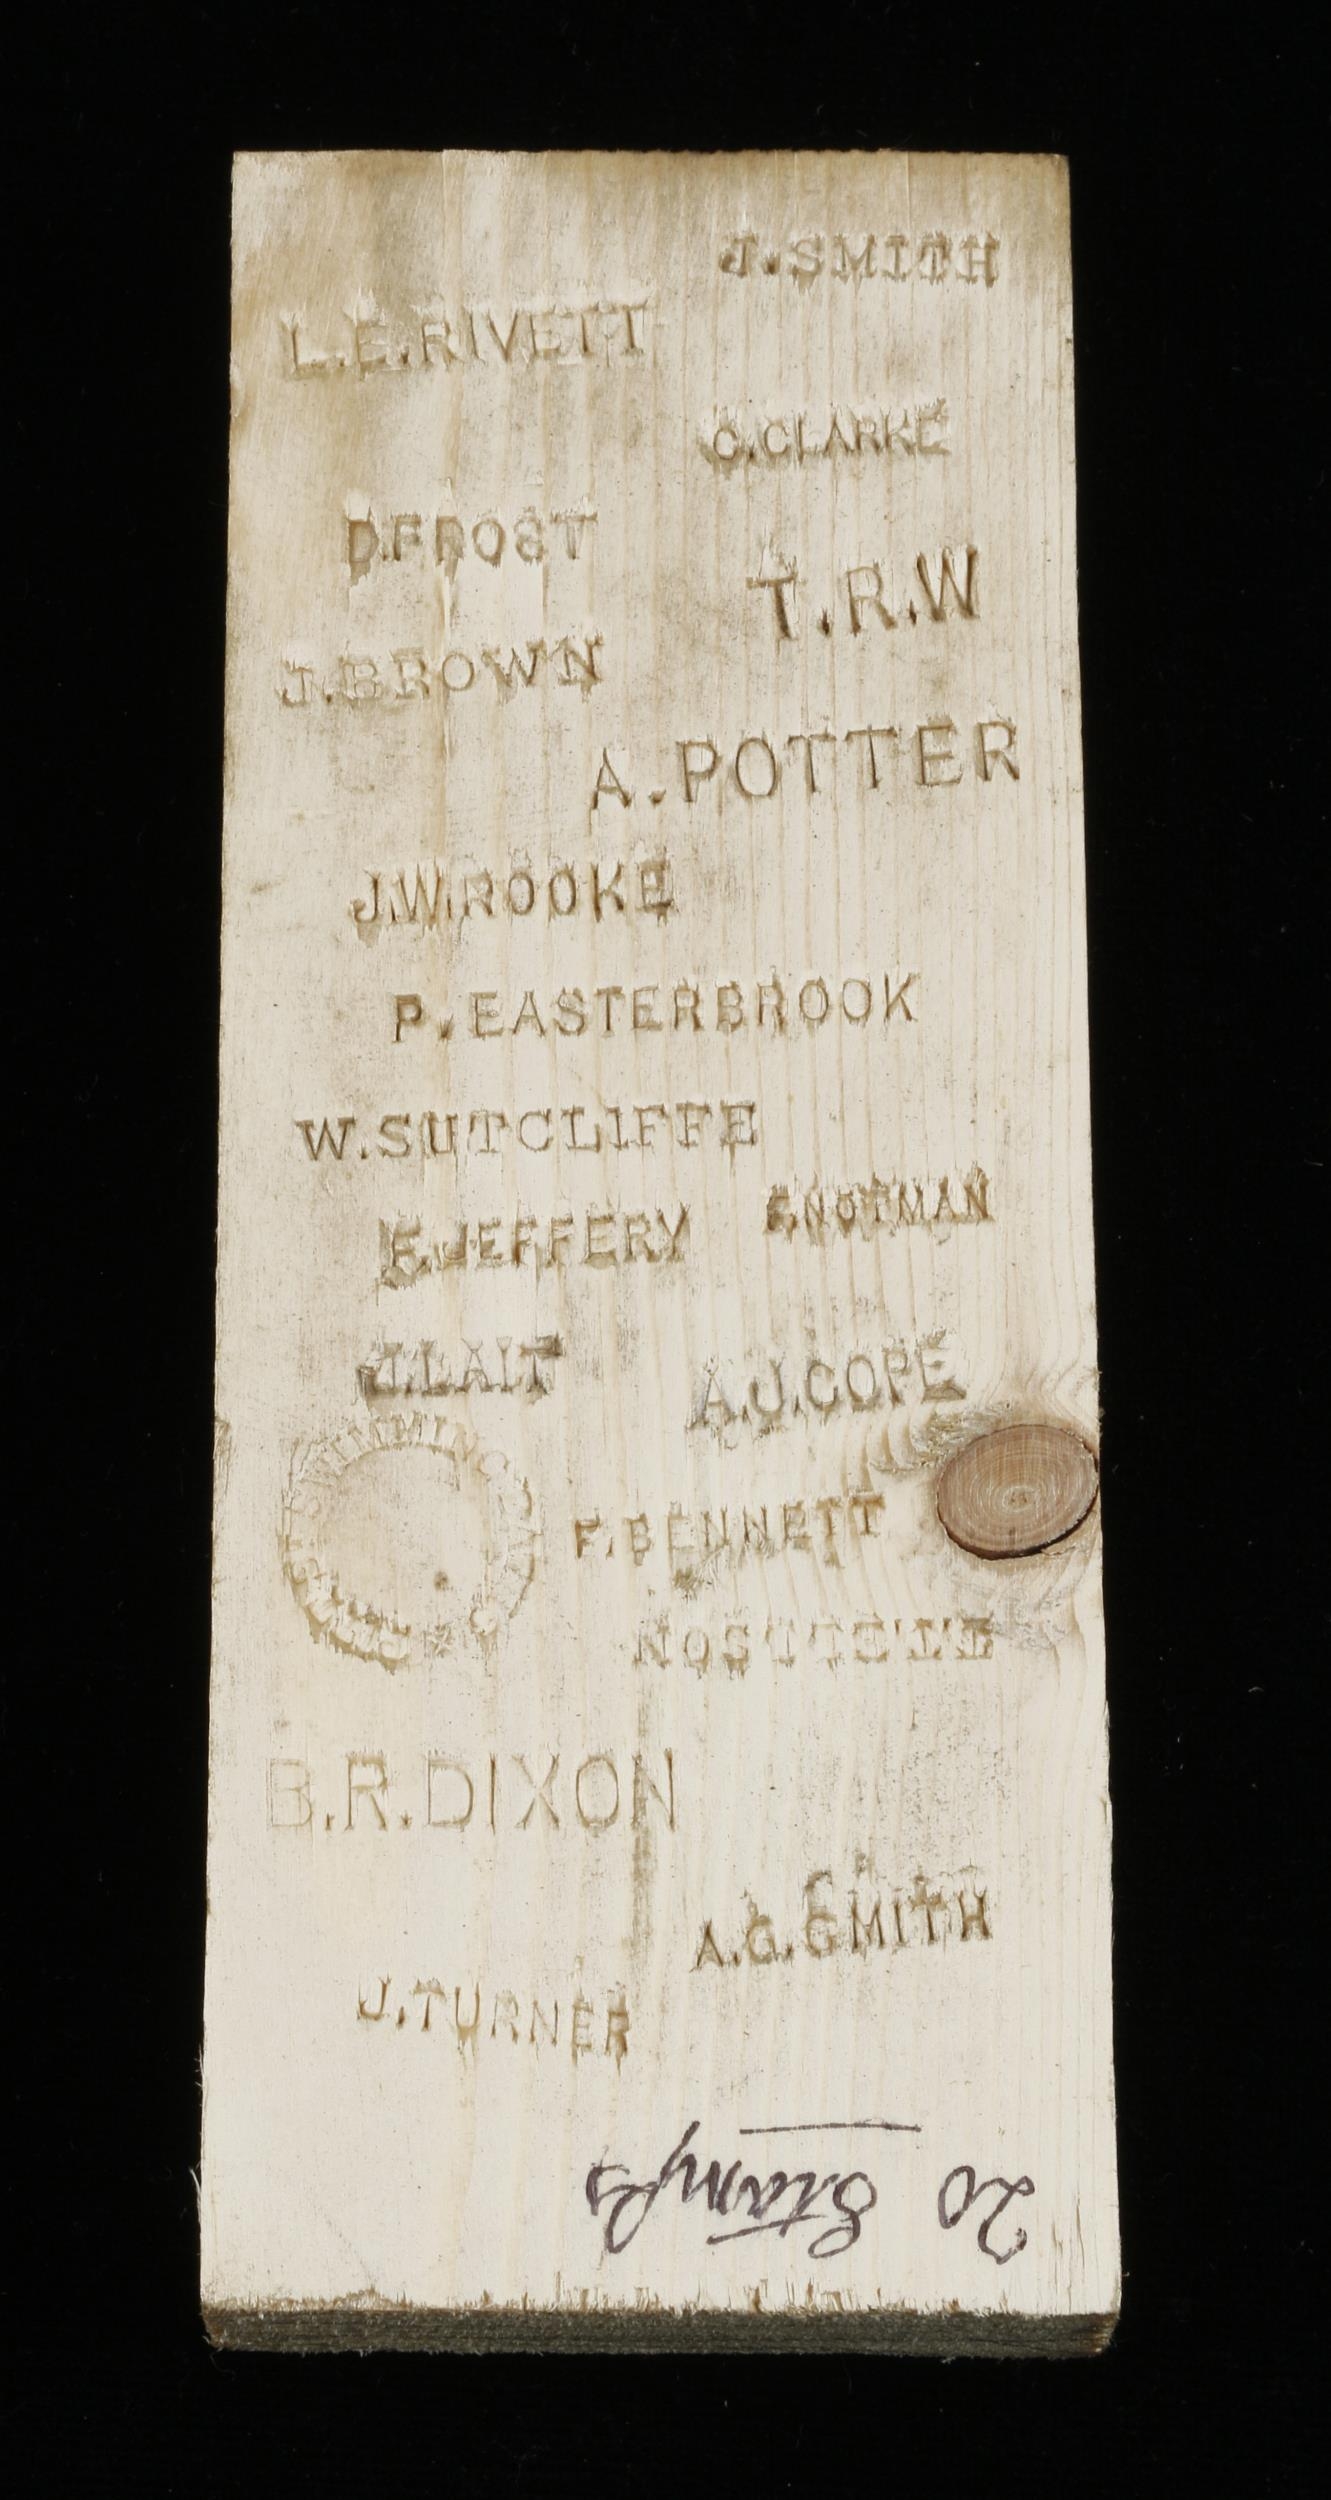 J.SMITH
L.E.RIVETT
C.CLARKE
D.FROST
T.R.W
J.BROWN
A.POTTER
J.W.ROOKE
P.EASTERBROOK
W.SUTCLIFFE
E.JEFFERY
F.NOTMAN
J.LAIT
A.J.COPE
SWIMMING
F.BENNETT
B.R.DIXON
A.G.SMITH
J.TURNER
20 Stamps